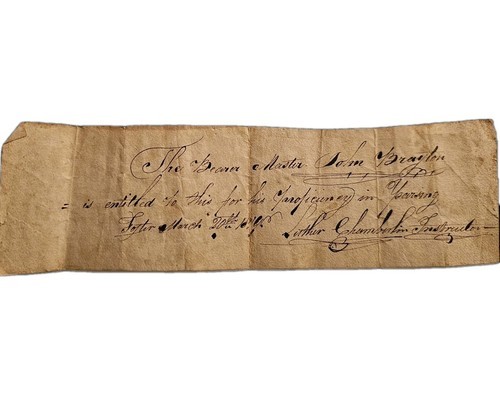 The Bearer Master John Brayton
= is entitled to this for his proficiency in Parsing
Foster March 20th
Luther Chamberlin Instructor